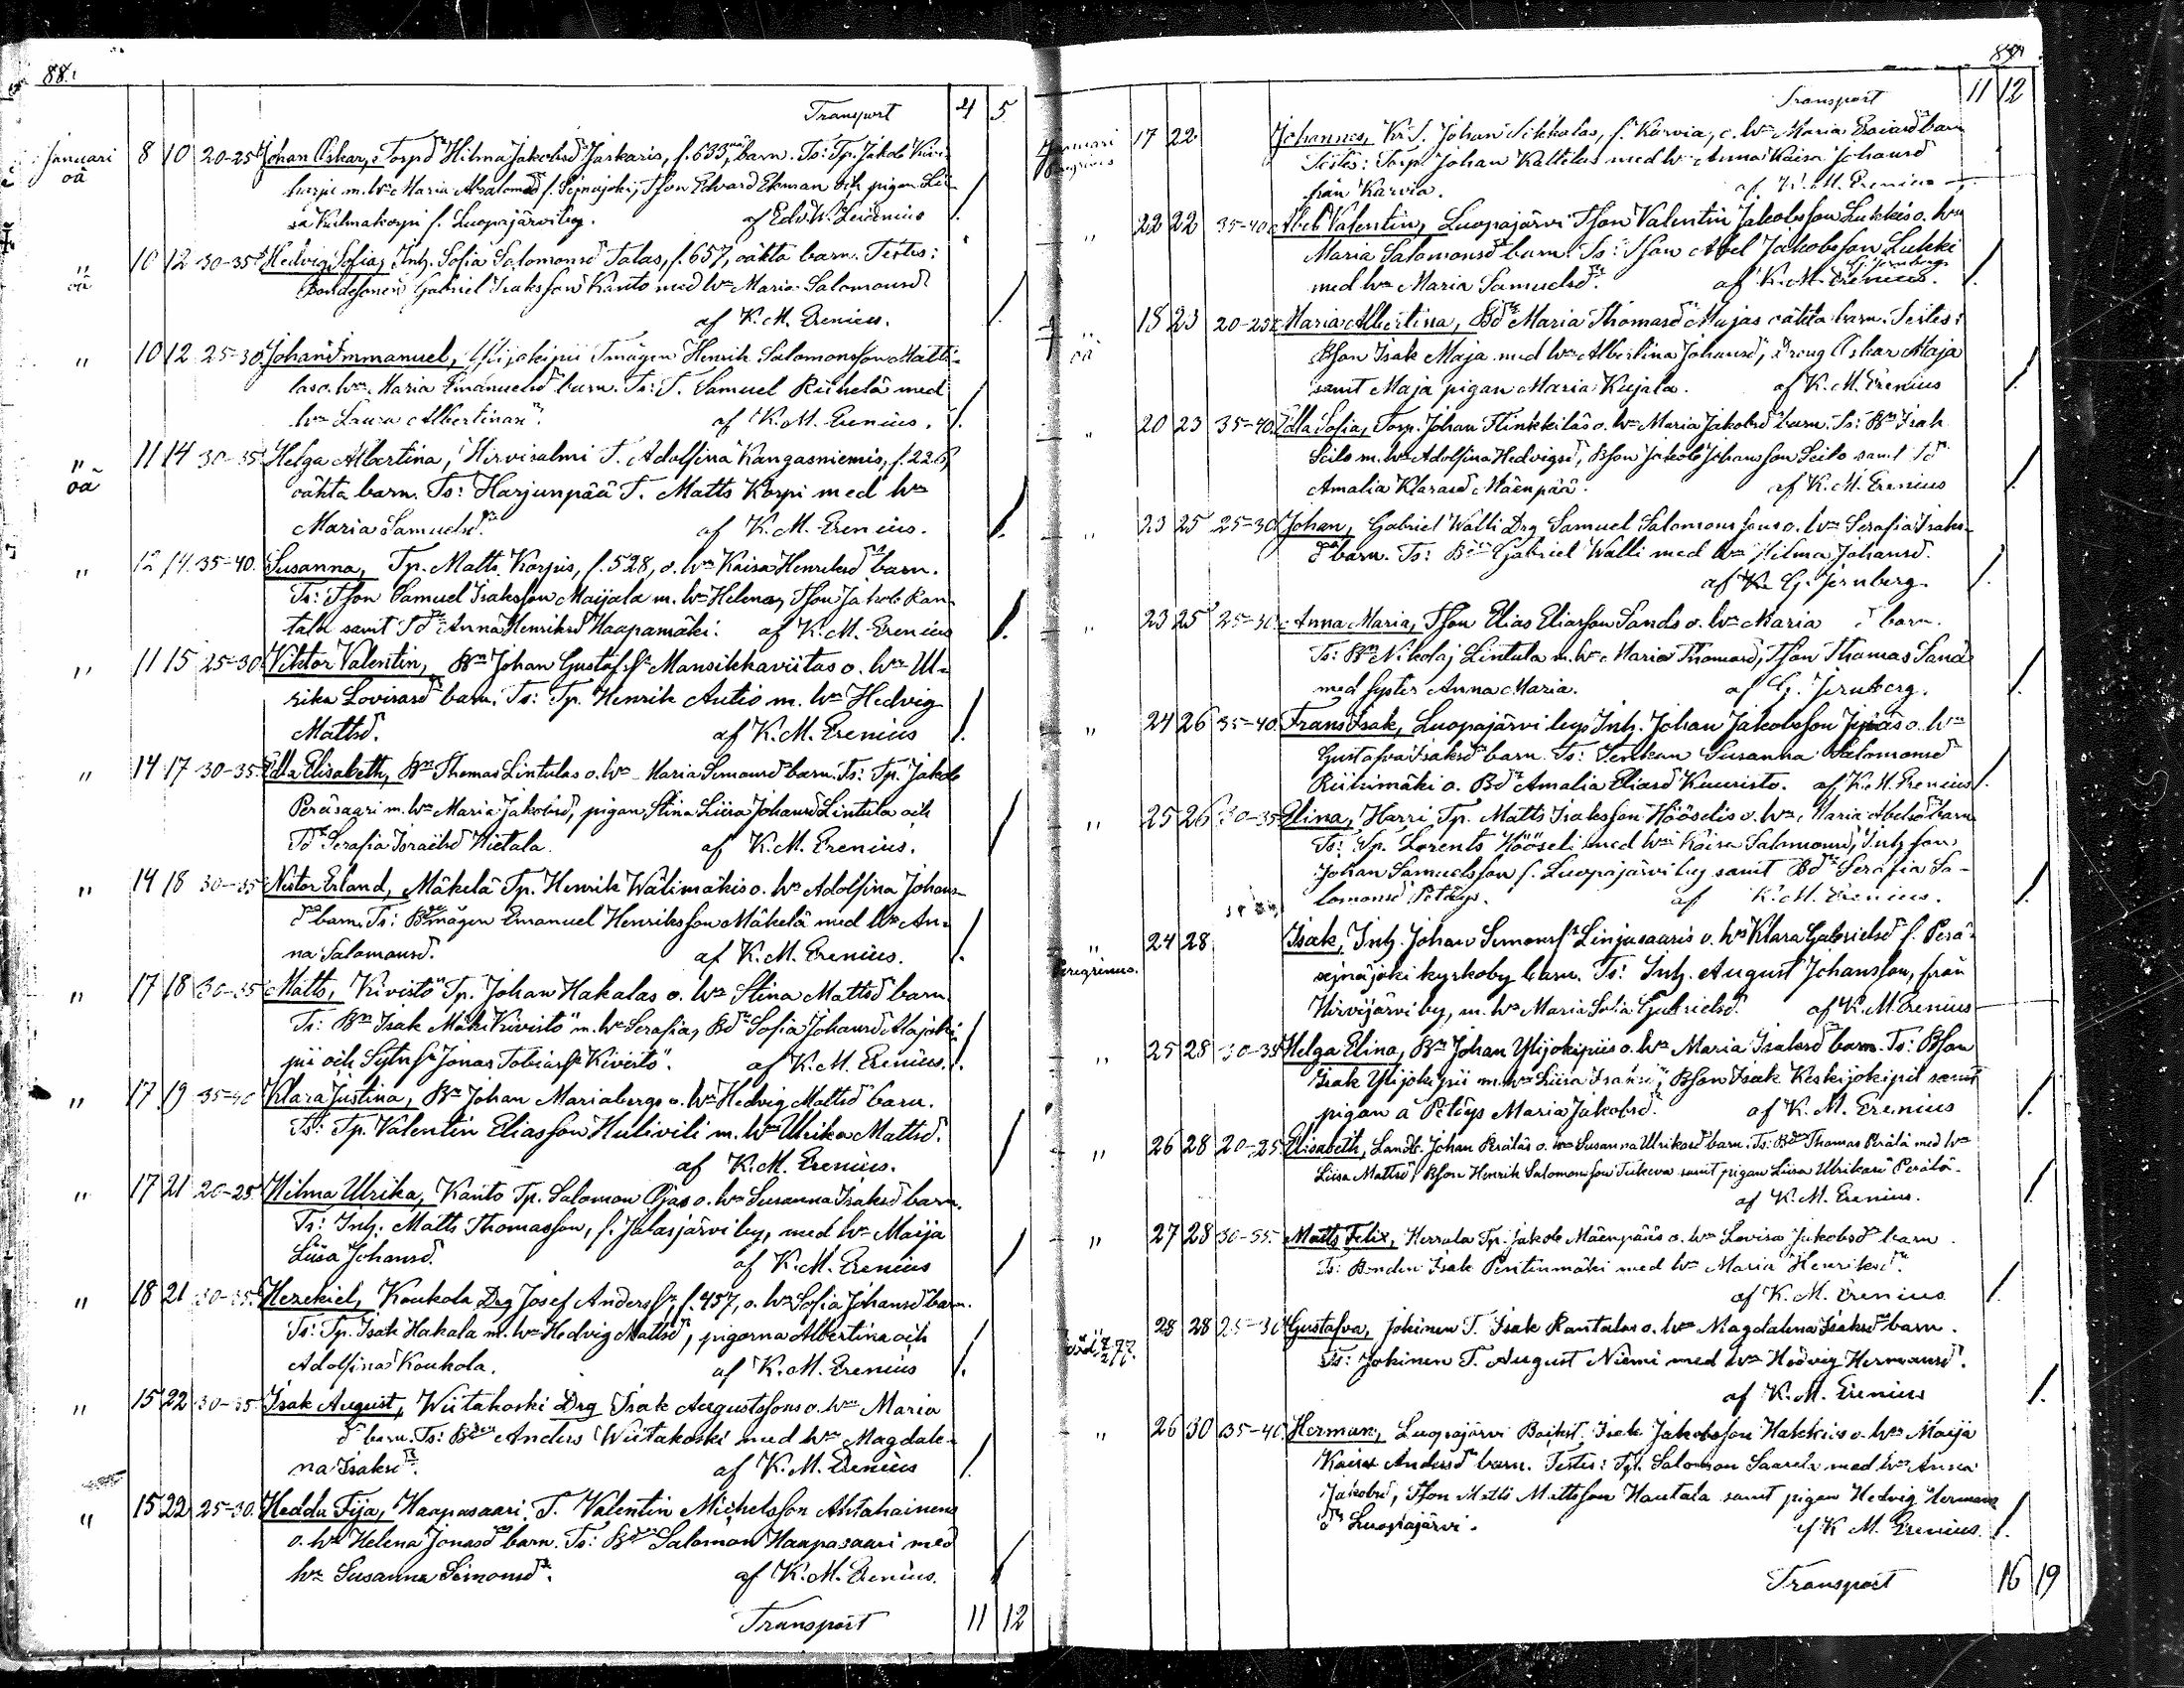 88.
Transport 4 5
Januari 8 10 20-25 Johan Oskar, Torpd Hilma Jakobsd Jaskaris, f. 633, barn. Ts: Tp. Jakob Kivi-
oä harju m. hu Maria Absalomsd f. Sejnäjoki, Tson Edvard Ekman och pigan Lii-
sa Kulmakorpi f. Luopajärvi by. af Edv. W. Lucenius
" 10 12 30-35 Hedvig Sofia, Inh. Sofia Salomonsd Talas, f. 657, oäkta barn. Testes:
oä Bondesonen Gabriel Isaksson Kanto med hu Maria Salomonsd
af K. M. Erenius.
" 10 12 25-30 Johan Immanuel, Ylijokipii Tmågen Henrik Salomonsson Matti-
las o. hu Maria Emanuelsd barn. Ts: T. Samuel Riihelä med
hu Laura Albertinasd. af K. M. Erenius.
" 11 14 30-35 Helga Albertina, Hirvisalmi T. Adolfina Kangasniemis, f. 226,
oä oäkta barn. Ts: Harjunpää T. Matts Korpi med hu
Maria Samuelsd. af K. M. Erenius.
" 12 14 35-40. Susanna, Tp. Matts Korpis, f. 528, o. hu Kaisa Henriksd barn.
Ts: Tson Samuel Isaksson Maijala m. hu Helena, Tson Jakob Ran-
tala samt Td Anna Henriksd Haapamäki. af K. M. Erenius
" 11 15 25-30 Viktor Valentin, Bn Johan Gustafss Mansikkaviitas o. hu Ul-
rika Lovisasd barn. Ts: Tp. Henrik Autio m. hu Hedvig
Mattsd. af K. M. Erenius
" 14 17 30-35 Edla Elisabeth, Bn Thomas Lintulas o. hu Maria Simonsd barn. Ts: Tp. Jakob
Peräsaari m. hu Maria Jakobsd, pigan Stina Liisa Johansd Lintula och
Td Serafia Israelsd Hietala. af K. M. Erenius.
" 14 18 30-35 Nestor Erland, Mäkelä Tp. Henrik Wälimäkis o. hu Adolfina Johans-
d barn. Ts: Bmågen Emanuel Henriksson Mäkelä med hu An-
na Salomonsd. af K. M. Erenius.
" 17 18 30-35 Matts, Kivistö Tp. Johan Hakalas o. hu Stina Mattsd barn.
Ts: Bn Isak Mäki Kivistö m. hu Serafia, Bd Sofia Johansd Alajoki-
pii och Sytn Jonas Tobiass Kivistö. af K. M. Erenius.
" 17 19 35-40 Klara Justina, Bn Johan Mariabergs o. hu Hedvig Mattsd barn.
Ts: Tp. Valentin Eliasson Hulivili m. hu Ulrika Mattsd.
af K. M. Erenius.
" 17 21 20-25 Hilma Ulrika, Kanto Tp. Salomon Ojas o. hu Susanna Isaksd barn.
Ts: Inh. Matts Thomasson, f. Jalasjärvi by, med hu Maija
Liisa Johansd. af K. M. Erenius
" 18 21 30-35. Hezekiel, Koukola Drg Josef Anderss, f. 457, o. hu Sofia Johansd barn.
Ts: Tp. Isak Hakala m. hu Hedvig Mattsd, pigorna Albertina och
Adolfina Koukola. af K. M. Erenius
" 15 22 30-35 Isak August, Wiitakoski Drg Isak Augustssons o. hu Maria
d barn. Ts: Bden Anders Wiitakoski med hu Magdale-
na Isaksd. af K. M. Erenius
" 15 22 25-30. Hedda Fija, Haapasaari T. Valentin Michelsson Ahtahainens
o. hu Helena Jonasd barn. Ts: Bd Salomon Haapasaari med
hu Susanna Simonsd. af K. M. Erenius.
Transport 11 12
89
Transport 11 12
Januari 17 22 Johannes, Kr. S. Johan Sikkalas, f. Karvia, o. hu Maria Esaiasd barn
Peregrinus Testes: Torp. Johan Kattelus med hu Anna Kaisa Johansd
från Karvia. af K. M. Erenius
" 22 22 35-40 Abel Valentin, Luopajärvi Tson Valentin Jakobsson Lukkis o. hu
Maria Salomonsd barn. Ts: Tson Abel Jakobsson Lukki
med hu Maria Samuelsd. af K. M. Erenius. G. Jernberg
" 18 23 20-25 Maria Albertina, Bd Maria Thomasd Majas oäkta barn. Testes:
oä Bson Isak Maja med hu Albertina Johansd, Dreng Oskar Maja
samt Maja pigan Maria Kujala. af K. M. Erenius
" 20 23 35-40. Edla Sofia, Torp. Johan Flinkkiläs o. hu Maria Jakobsd barn. Ts: Bn Isak
Seilo m. hu Adolfina Hedvigsd, Bson Jakob Johansson Seilo samt Td
Amalia Klarasd Mäenpää. af K. M. Erenius
" 23 25 25-30. Johan, Gabriel Walli Drg Samuel Salomonssons o. hu Serafia Isaks-
d barn. Ts: Bn Gabriel Walli med hu Hilma Johansd.
af K. G. Jernberg.
" 23 25 25-30. Anna Maria, Tson Elias Eliasson Sands o. hu Maria d barn.
Ts: Bn Nikolaj Lintula m. hu Maria Thomasd, Tson Thomas Sand
med syster Anna Maria. af G. Jernberg.
" 24 26 35-40. Frans Isak, Luopajärvi bys Inh. Johan Jakobsson o. hu
Gustafva Isaksd barn. Ts: Enkan Susanna Salomonsd
Riihimäki o. Bd Amalia Eliasd Kuuristo. af K. M. Erenius
" 25 26 30-35 Elina, Harri Tp. Matts Isaksson Hööselis o. hu Maria Abelsd barn
Ts: Tp. Lorents Hööseli med hu Kaisa Salomonsd, Inh. son
Johan Samuelsson f. Luopajärvi by samt Bd Serafia Sa-
lomonsd Petäys. af K. M. Erenius.
" 24 28 Isak, Inh. Johan Simonss Linjusaaris o. hu Klara Gabrielsd f. Perä-
Peregrinus. sejnäjoki kyrkoby barn. Ts: Inh. August Johansson, från
Hirvijärvi by, m. hu Maria Sofia Gabrielsd. af K. M. Erenius
" 25 28 30-35 Helga Elina, Bn Johan Ylijokipiis o. hu Maria Isaksd barn. Ts: Bson
Isak Ylijokipii m. hu Liisa Isaksd, Bson Isak Keskijokipii samt
pigan å Petäys Maria Jakobsd. af K. M. Erenius
" 26 28 20-25. Elisabeth, Landb. Johan Peräläs o. hu Susanna Ulrikasd barn. Ts: Bd Thomas Perälä med hu
Liisa Mattsd, Bson Henrik Salomonsson Tukeva samt pigan Liisa Ulrikasd Perälä.
af K. M. Erenius.
" 27 28 30-35. Matts Felix, Herrala Tp. Jakob Mäenpääs o. hu Lovisa Jakobsd barn.
Ts: Bonden Isak Pentinmäki med hu Maria Henriksd.
af K. M. Erenius
" 28 28 25-30 Gustafva, Jokinen T. Isak Rantalas o. hu Magdalena Isaksd barn.
Ts: Jokinen T. August Niemi med hu Hedvig Hermansd.
af K. M. Erenius
" 26 30 35-40. Herman, Luopajärvi Isak Jakobsson Hakkis o. hu Maija
Kaisa Andersd barn. Testes: Tp. Salomon Saarela med hu Anna
Jakobsd, Tson Matts Mattsson Hautala samt pigan Hedvig Hermans-
d Luopajärvi. af K. M. Erenius.
Transport 16 19